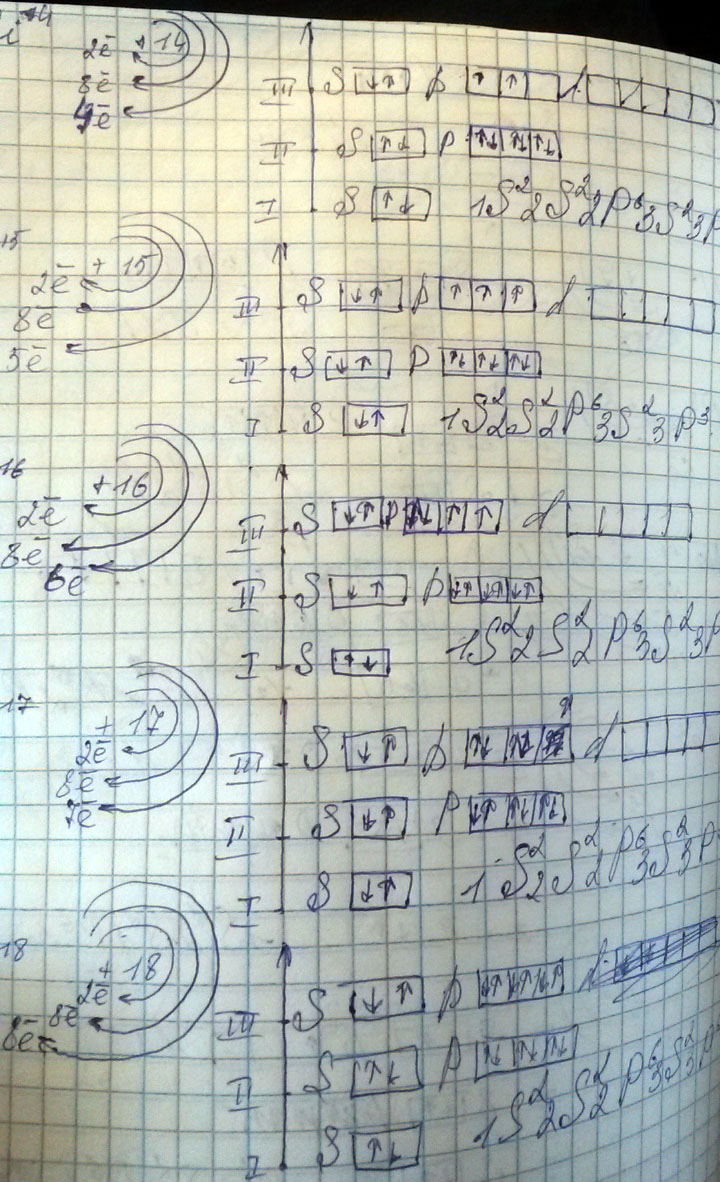 14
2ē +14
8ē
4ē
III S ↓↑ p ↑ ↑ d
II S ↑↓ p ↑↓ ↑↓ ↑↓
I S ↑↓ 1S²2S²2p⁶3S²3p
15
2ē +15
8ē
5ē
III S ↓↑ p ↑ ↑ ↑ d
II S ↓↑ p ↑↓ ↑↓ ↑↓
I S ↓↑ 1S²2S²2p⁶3S²3p³
16
2ē +16
8ē
6ē
III S ↓↑ p ↑↓ ↑ ↑ d
II S ↓↑ p ↓↑ ↓↑ ↓↑
I S ↑↓ 1S²2S²2p⁶3S²3p
17
2ē +17
8ē
7ē
III S ↓↑ p ↑↓ ↑↓ ↑ d
II S ↓↑ p ↓↑ ↑↓ ↑↓
I S ↓↑ 1S²2S²2p⁶3S²3p
18
2ē +18
8ē
8ē
III S ↓↑ p ↓↑ ↓↑ ↓↑
II S ↑↓ p ↑↓ ↑↓ ↑↓
I S ↑↓ 1S²2S²2p⁶3S²3p